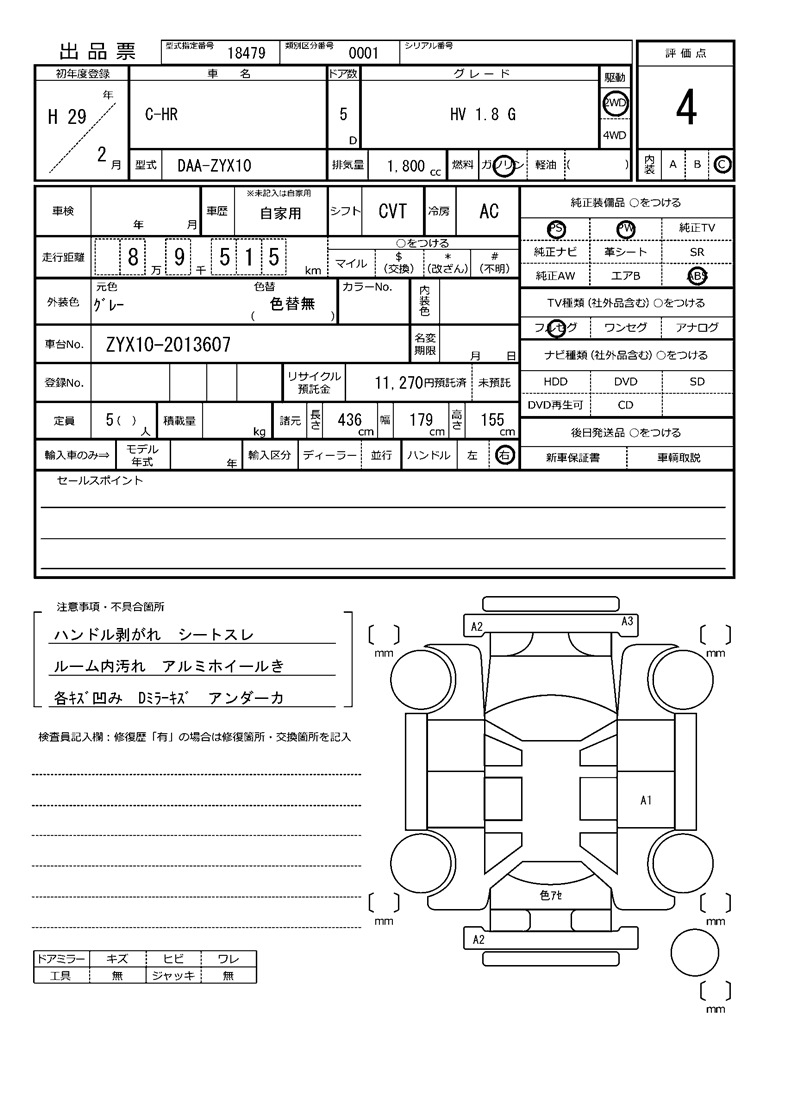 出品票 型式指定番号 18479 類別区分番号 0001 シリアル番号 評価点
初年度登録 車名 ドア数 グレード 駆動
H 29 年 2 月 C-HR 5 D HV 1.8 G 2WD 4WD 4
型式 DAA-ZYX10 排気量 1,800 cc 燃料 ガソリン 軽油 ( ) 内装 A B C
車検 年 月 車歴 ※未記入は自家用 自家用 シフト CVT 冷房 AC 純正装備品 ○をつける
PS PW 純正TV
走行距離 8 万 9 千 5 1 5 km ○をつける 純正ナビ 革シート SR
マイル $ (交換) * (改ざん) # (不明) 純正AW エアB ABS
外装色 元色 グレー 色替 色替無 ( ) カラーNo. 内装色 TV種類 (社外品含む) ○をつける
フルセグ ワンセグ アナログ
車台No. ZYX10-2013607 名変期限 月 日 ナビ種類 (社外品含む) ○をつける
登録No. リサイクル預託金 11,270円預託済 未預託 HDD DVD SD
DVD再生可 CD
定員 5 ( ) 人 積載量 kg 諸元 長さ 436 cm 幅 179 cm 高さ 155 cm 後日発送品 ○をつける
輸入車のみ⇒ モデル年式 年 輸入区分 ディーラー 並行 ハンドル 左 右 新車保証書 車輌取説
セールスポイント
注意事項・不具合箇所
ハンドル剥がれ シートスレ
ルーム内汚れ アルミホイールき
各ｷｽﾞ凹み Dﾐﾗｰｷｽﾞ アンダーカ
検査員記入欄：修復歴「有」の場合は修復箇所・交換箇所を記入
A2 A3
mm mm
A1
色ｱｾ
mm mm
A2
mm
ドアミラー キズ ヒビ ワレ
工具 無 ジャッキ 無